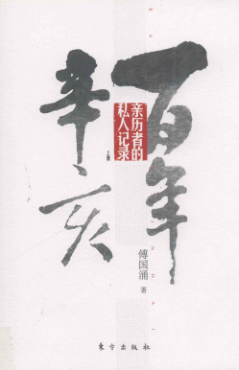 百年
辛亥
亲历者的
私人记录
上册
傅国涌 著
东方出版社